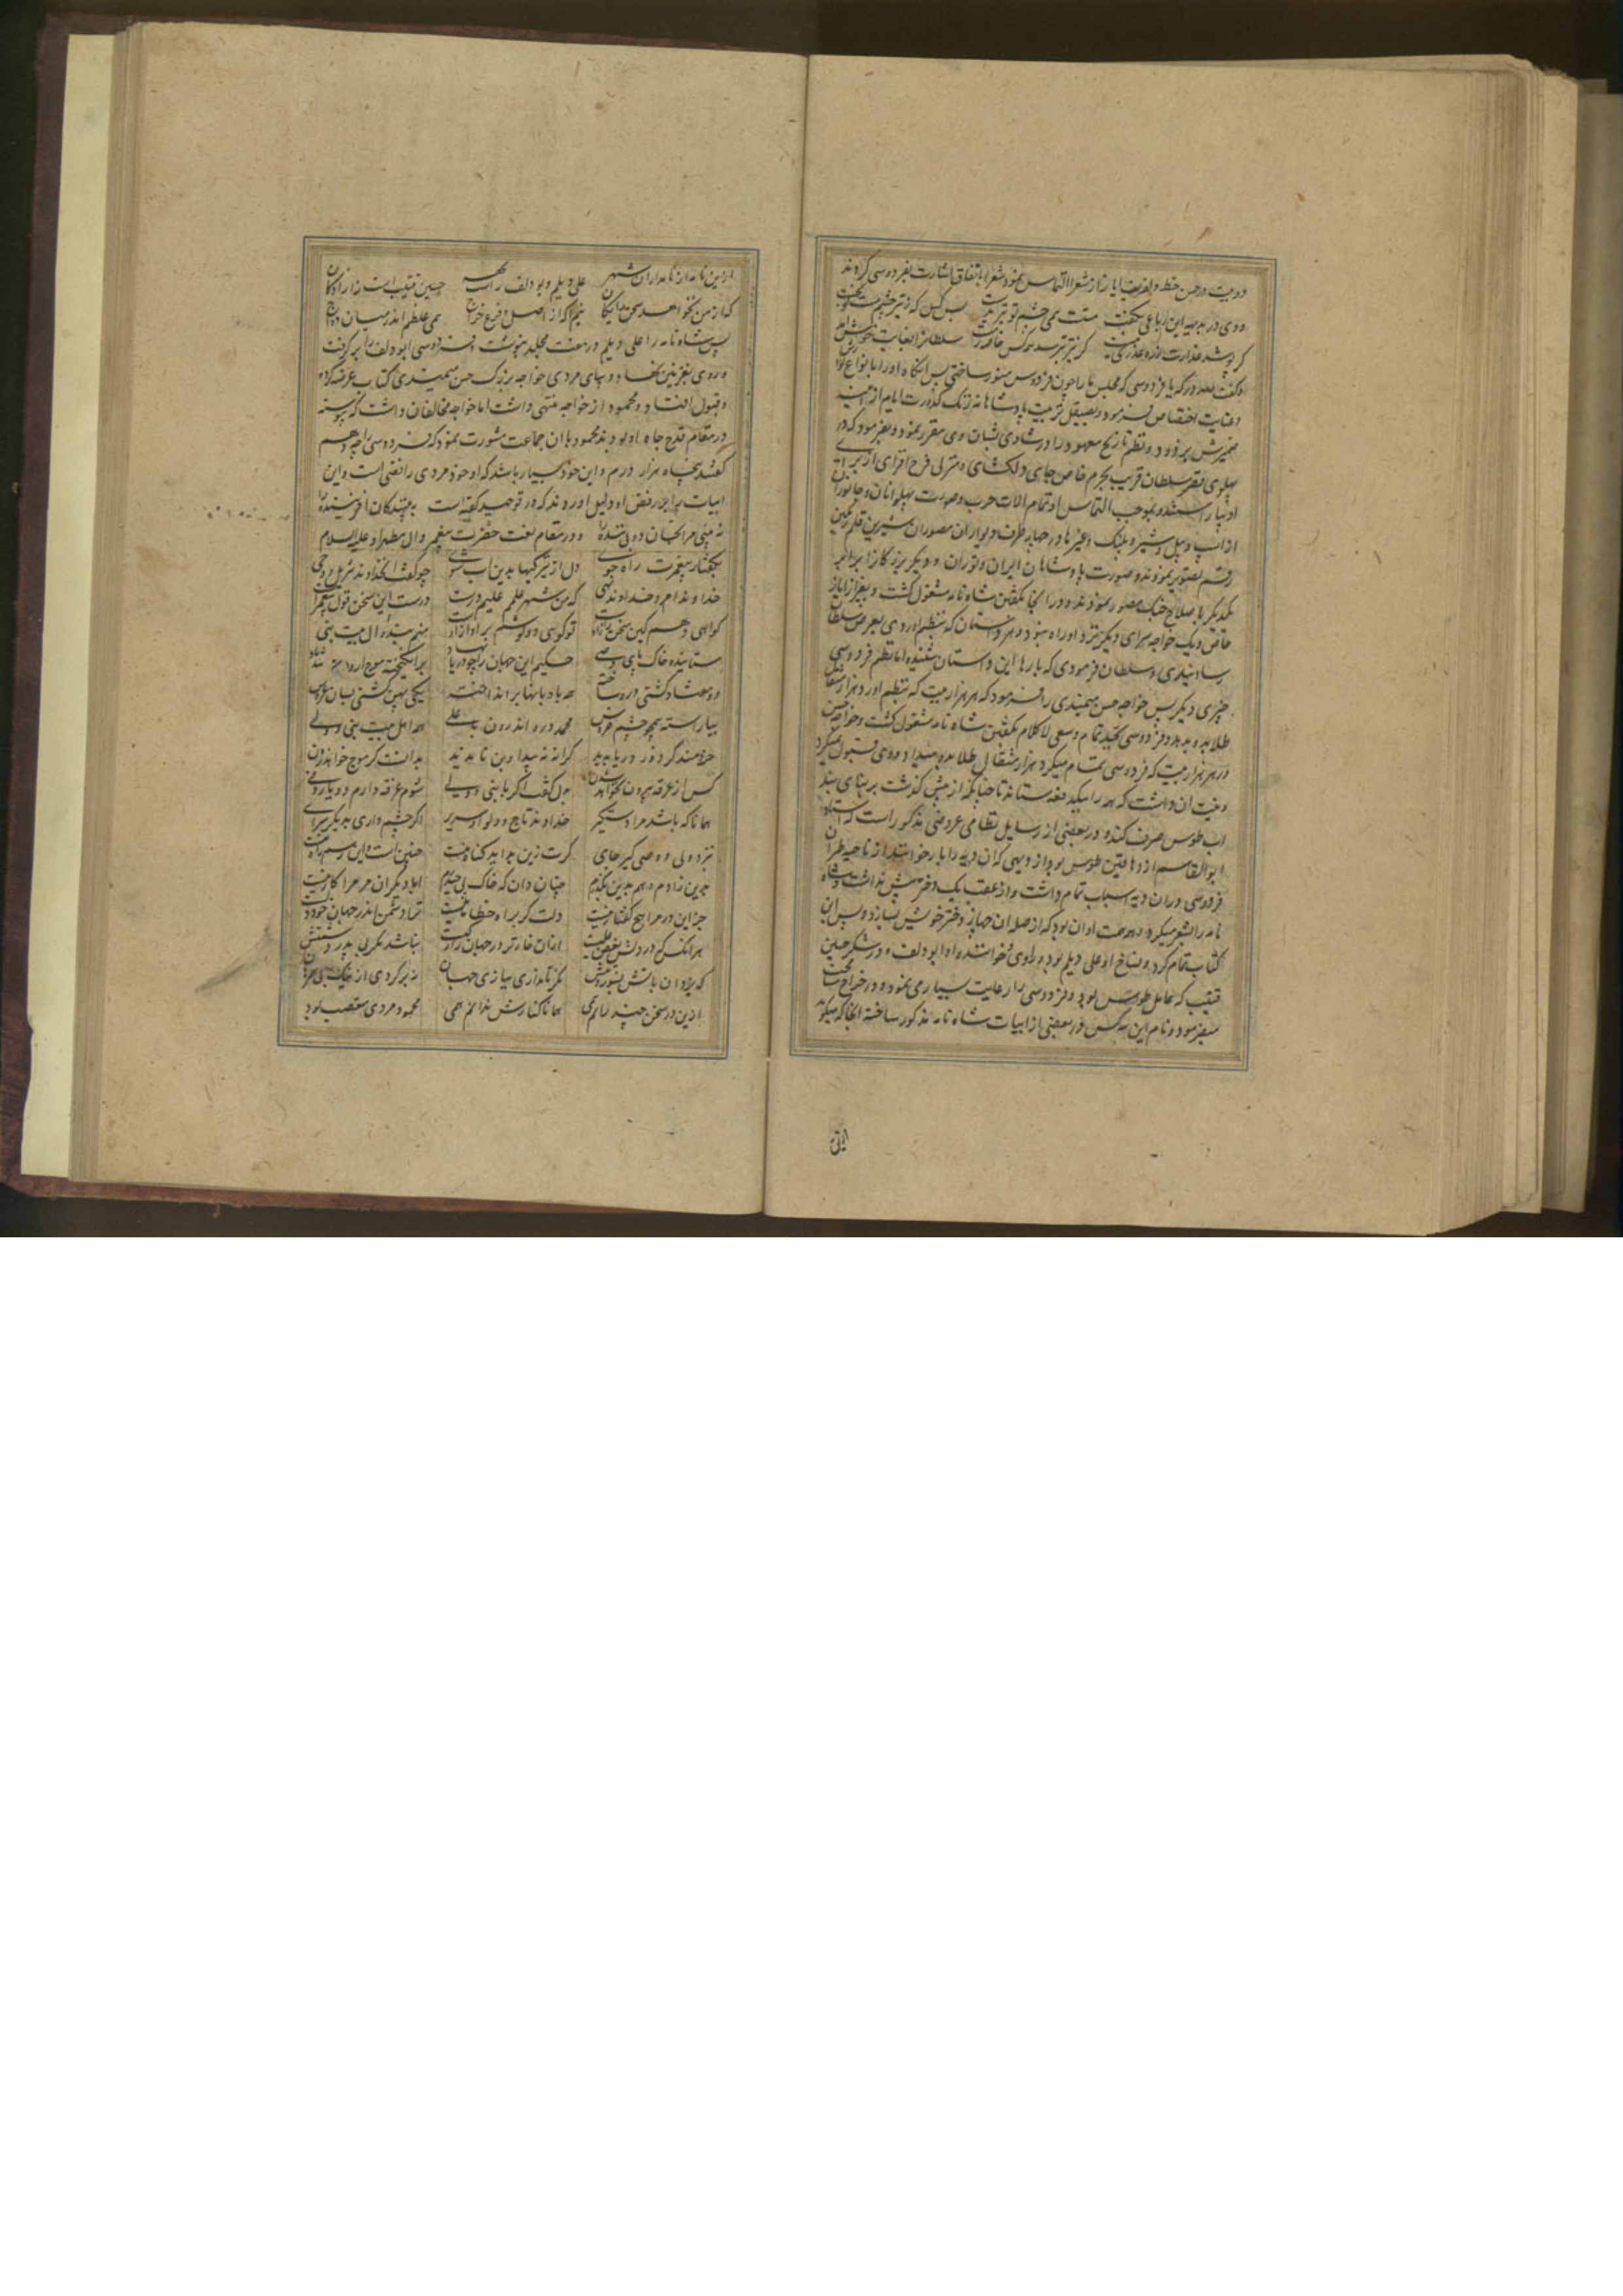 دو بیت در حسن خط و لفریب ایاز از شعرا التماس نمود شعرا باتفاق اشارت بفردوسی کردند
و وی در بدیهه این رباعی بگفت مست همی چشم تو و تیر بدست بس کس که ز تیر چشم مست تو بخست
کر پوشد عذارت زره عذرش هست کز تیر بترسد همه کس خاصه ز مست سلطانرا بغایت خوش
و گفت لله درک یا فردوسی که مجلس ما را چون فردوس منور ساختی پس انکاه او را بانواع
و عنایت اختصاص فرمود و بصیقل تربیت پادشاهانه زنک کدورت ایام از
ضمیرش بزدود و نظم تاریخ معهود را در شان وی مقرر نمود و بفرمود که در
پهلوی قصر سلطان قریب بحرم خاص جای دلکشای و منزلی فرح افزای از برای
او بموجب التماس او تمام الات حرب و صورت پهلوانان و جانوران
از اسب و پیل و شیر و پلنک و غیرها در چهار طرف دیوار ان مصوران شیرین قلم
رقم تصویر نمودند و صورت پادشاهان ایران و توران و دیکر بزرکانرا برابر
یکدیکر با صلاح جنک مصور نمودند و در انجا بکفتن شاه نامه مشغول کشت و بغیر از ایاز
خاص و یک خواجه سرای دیکر نزد او راه نبود و هر داستان که بنظم اوردی بعرض سلطان
رسانیدی و سلطان فرمودی که بارها این داستان شنیده اما نظم فردوسی
چیزی دیکر پس خواجه حسن میمندی را فرمود که هر هزار بیت که بنظم اورد هزار مثقال
طلا بدو بدهد و فردوسی بجد تمام و سعی لا کلام بکفتن شاه نامه مشغول کشت و خواجه حسن
در هر هزار بیت که فردوسی تمام میکرد هزار مثقال طلا بدو میداد و وی قبول نمیکرد
و نیت ان داشت که همه را بیکدفعه ستاند تا چنانکه از پیش کذشت بر بنای بند
اب طوس صرف کند و در بعضی از رسایل نظامی عروضی مذکور است که استاد
ابو القاسم از دهاقین طوس بود از دیهی که ان دیه را باز خوانند از ناحیه طبران
فردوسی در ان دیه اسباب تمام داشت و از عقب یک دختر بیش نداشت و شاه
نامه را بشعر میکرد و همه همت او ان بود که از صله ان جهاز دختر خویش بسازد و پس ان
کتاب تمام کرد و نساخ او علی دیلم بود و راوی و خواننده او ابو دلف و در شکر حسین
قتیب که عامل طوس بود و فردوسی را رعایت بسیار می نمود و در خراج
میفرمود و نام این سه کس در بعضی از ابیات شاه نامه مذکور ساخته انجا که میکوید
ازین نامه از نامداران شهر علی دیلم و بو دلف راست بهر حسین قتیب است از ازادکان
که از من نخواهد سخن رایکان نیم اکه از اصل و فرع خراج همی غلطم اندر میان دواج
پس شاه نامه را علی دیلم در هفت مجلد بنوشت و فردوسی ابو دلف را بر کرفت
و روی بغزنین نهاد و بپای مردی خواجه بزرک حسن میمندی کتاب عرضه کرد
و قبول افتاد و محمود از خواجه منتهی داشت اما خواجه مخالفان داشت که پیوسته
در مقام قدح جاه او بودند محمود با ان جماعت مشورت نمود که فردوسی را چه دهیم
کفتند پنجاه هزار درم و این خود بسیار باشد که او خود مردی رافضی است و این
ابیات برابر رفض او دلیل اوردند که در توحید کفته است به بینندکان افریننده را
نه بینی مرنجان دو بیننده را و در مقام نعت حضرت پیغمبر و ال مطهر او علیه السلام
بکفتار پیغمبرت راه جوی دل از تیرکیها بدین اب شوی چو کفت ان خداوند تنزیل و وحی
خداوند امر و خداوند نهی که من شهر علمم علیم درست درست این سخن قول پیغمبرست
کواهی دهم کین سخن راز اوست تو کویی دو کوشم بر اواز اوست منم بنده ال بیت نبی
ستاینده خاک پای وصی حکیم این جهان را چو دریا نهاد بر انکیخته موج ازو تند باد
دو هفتاد کشتی درو ساخته همه بادبانها بر انداخته یکی پهن کشتی بسان عروس
بیاراسته همچو چشم خروس محمد درو اندرون با علی همه اهل بیت نبی و ولی
خردمند کز دور دریا بدید کرانه نه پیدا و بن ناپدید بدانست کو موج خواهد زدن
کس از غرقه بیرون نخواهد شدن بدل کفت اکر با نبی و ولی شوم غرقه دارم دو یار وفی
همانا که باشد مرا دستکیر خداوند تاج و لوا و سریر اکر چشم داری بدیکر سرای
نزد ولی و وصی کیر جای کرت زین بد اید کناه منست چنین است و این رسم راه منست
بدین زادم و هم بدین بکذرم چنان دان که خاک پی حیدرم ابا دیکران مر مرا کار نیست
جز این در مرا هیچ کفتار نیست دلت کر براه خطا مایلست ترا دشمن اندر جهان خود دلست
هر انکس که در دلش بغض علیست ازان خارتر در جهان زار کیست نباشد مکر بی پدر دشمنش
که یزدان باتش بسوزد تنش نکر تا نداری ببازی جهان نه بر کردی از نیک پی همرهان
ازین در سخن چند رانم همی همانا کنارش ندانم همی محمود مردی متعصب بود